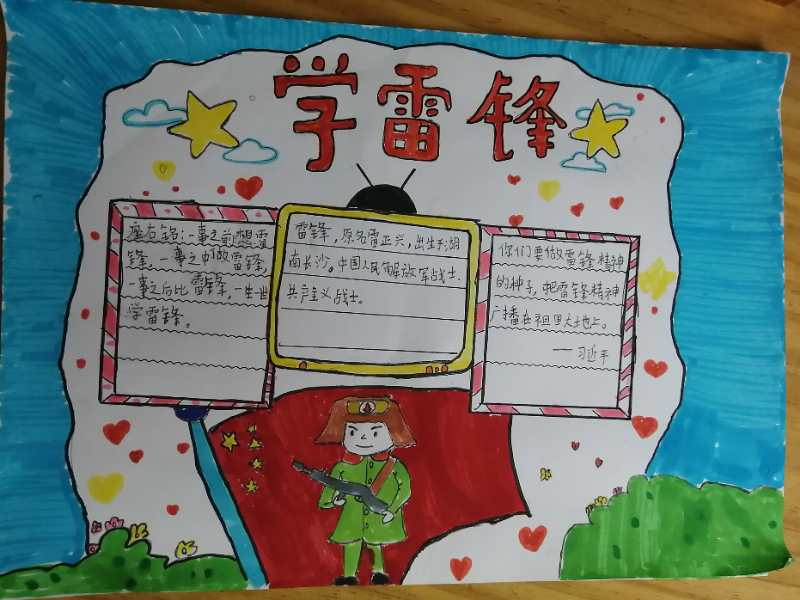 学雷锋
座右铭:一事之前想雷
锋，一事之中做雷锋，
一事之后比雷锋，一生一世
学雷锋。
雷锋，原名雷正兴，出生于湖
南长沙。中国人民解放军战士、
共产主义战士。
你们要做雷锋精神
的种子，把雷锋精神
广播在祖国大地上。
——习近平